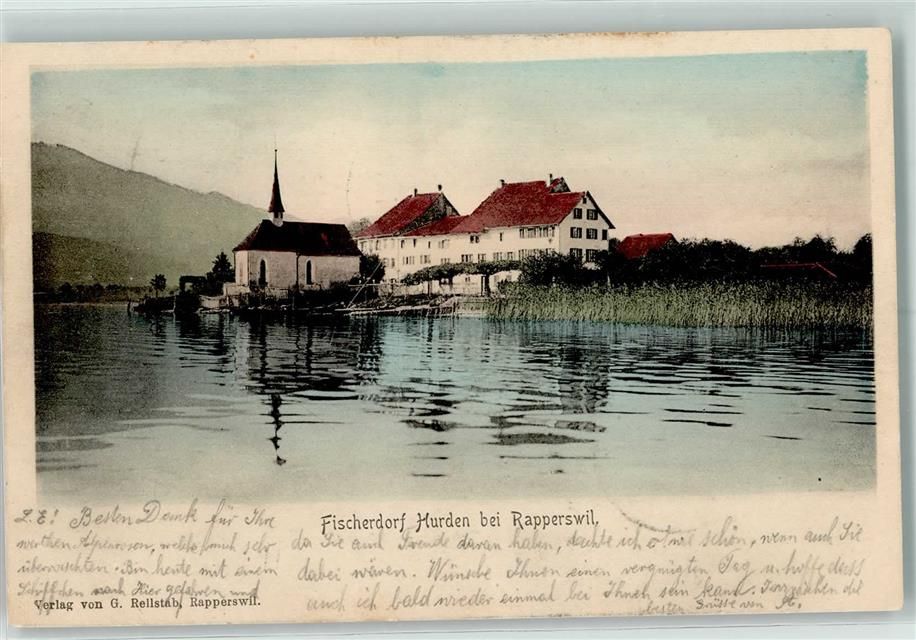 Fischerdorf Hurden bei Rapperswil.
L. E! Besten Dank für Ihre
werthen Alpenrosen, welche mich sehr
überraschten. Bin heute mit einem
Schiffchen nach Hier gefahren und
da Sie auch Freude daran haben, dachte ich wie schön, wenn auch Sie
dabei wären. Wünsche Ihnen einen vergnügten Tag u. hoffe dass
auch ich bald wieder einmal bei Ihnen sein kann. die
besten Grüsse von
Verlag von G. Rellstab, Rapperswil.